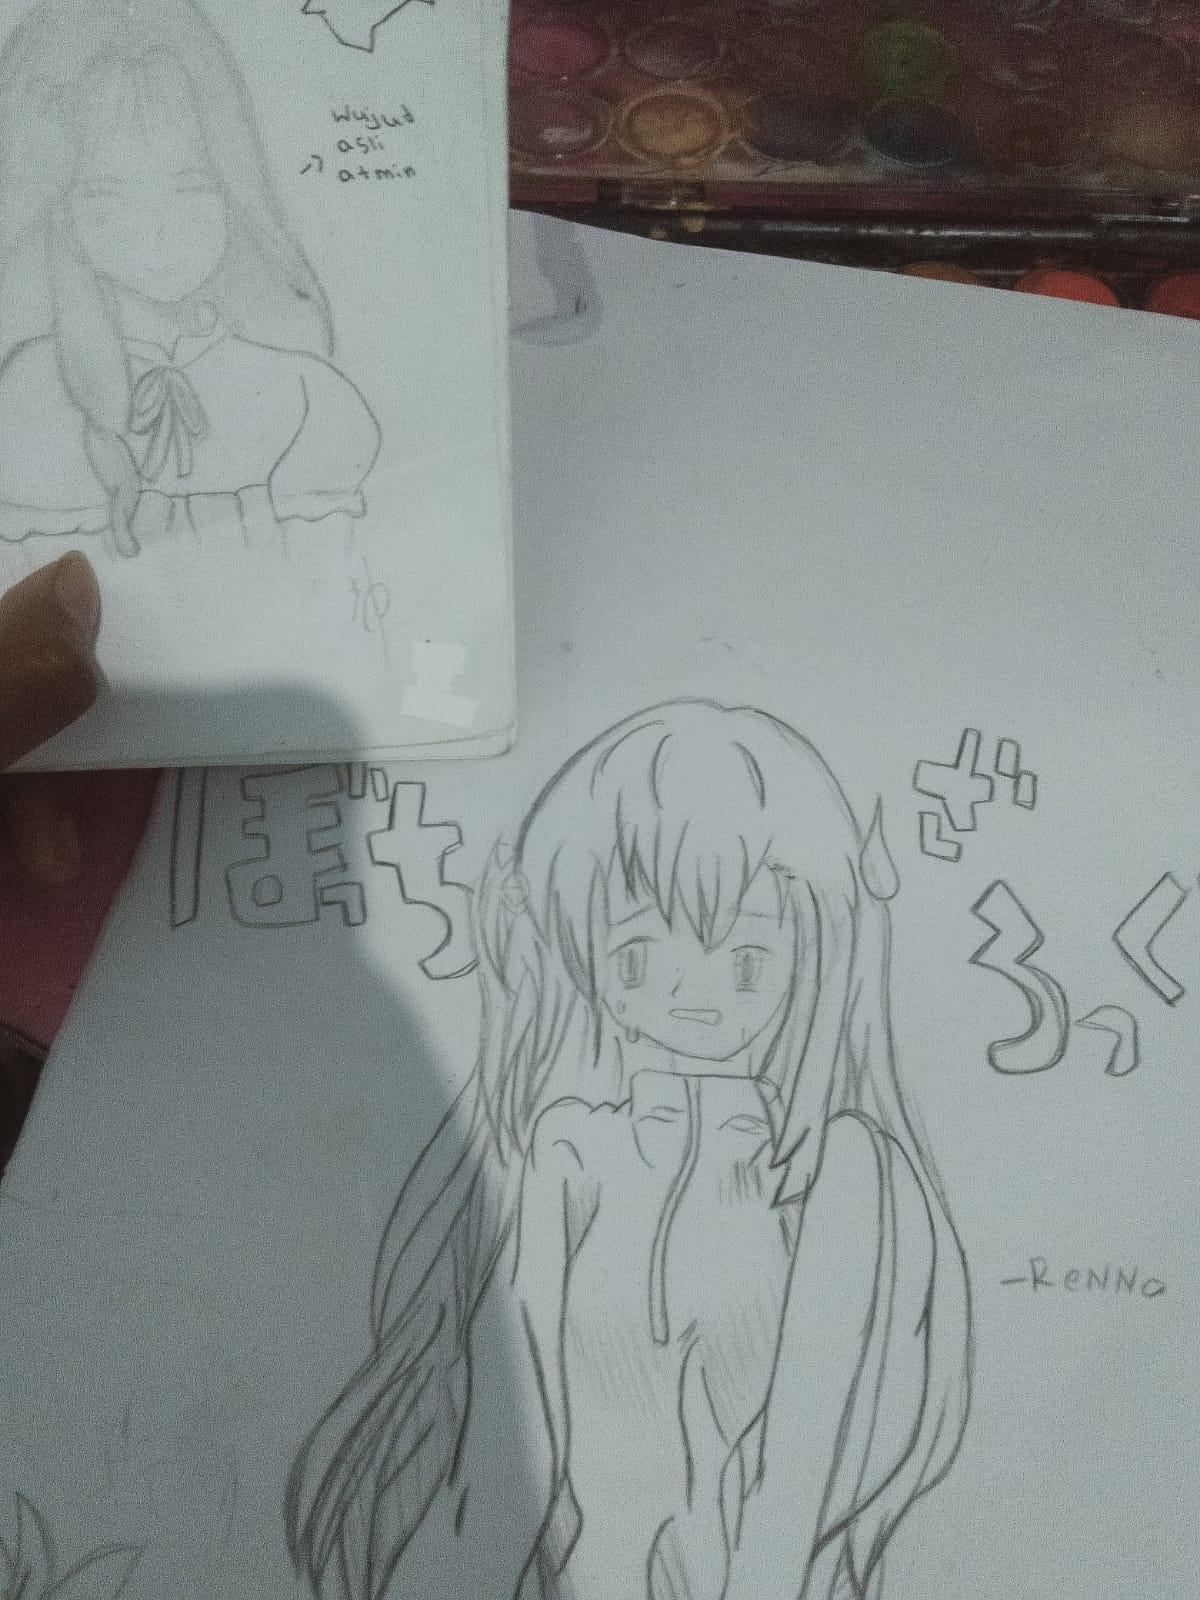 wujud
asli
atmin
ぼっち
ざ
ろっく
-ReNNo